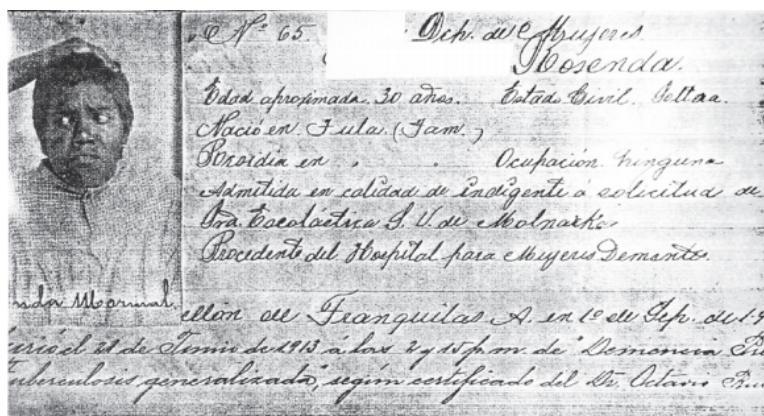 Nº 65. Dep. de Mujeres.
Rosenda.
Edad aproximada 30 años. Estado Civil. Soltera.
Nació en Tula (Tam.)
Residía en " " Ocupación. Ninguna
Admitida en calidad de indigente a solicitud de
Sra. Escolástica S. V. de
Procedente del Hospital para Mujeres Dementes.
nda Marmal.
ellón de Tranquilas A. en 1º de Sep. de 19
urió el 28 de Junio de 1913 á las 2 y 15 p.m. de "Demencia Pre
uberculosis generalizada," según certificado del Dr. Octavio